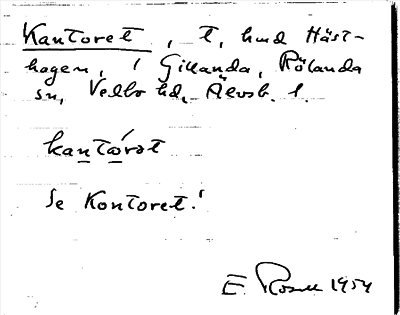 Kantoret, t, hmd Häst-
hagen, i Gillanda, Rölanda
sn, Vedbo hd, Älvsb. l.
kantórət
Se Kontoret!
E. Rosell 1954